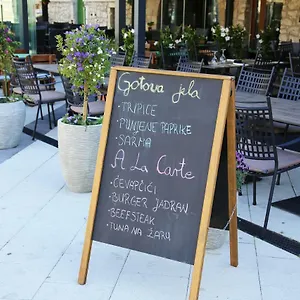 Gotova jela
• TRIPICE
• PUNJENE PAPRIKE
• SARMA
A La Carte
• ĆEVAPČIĆI
• BURGER JADRAN
• BEEFSTEAK
• TUNA NA ŽARU